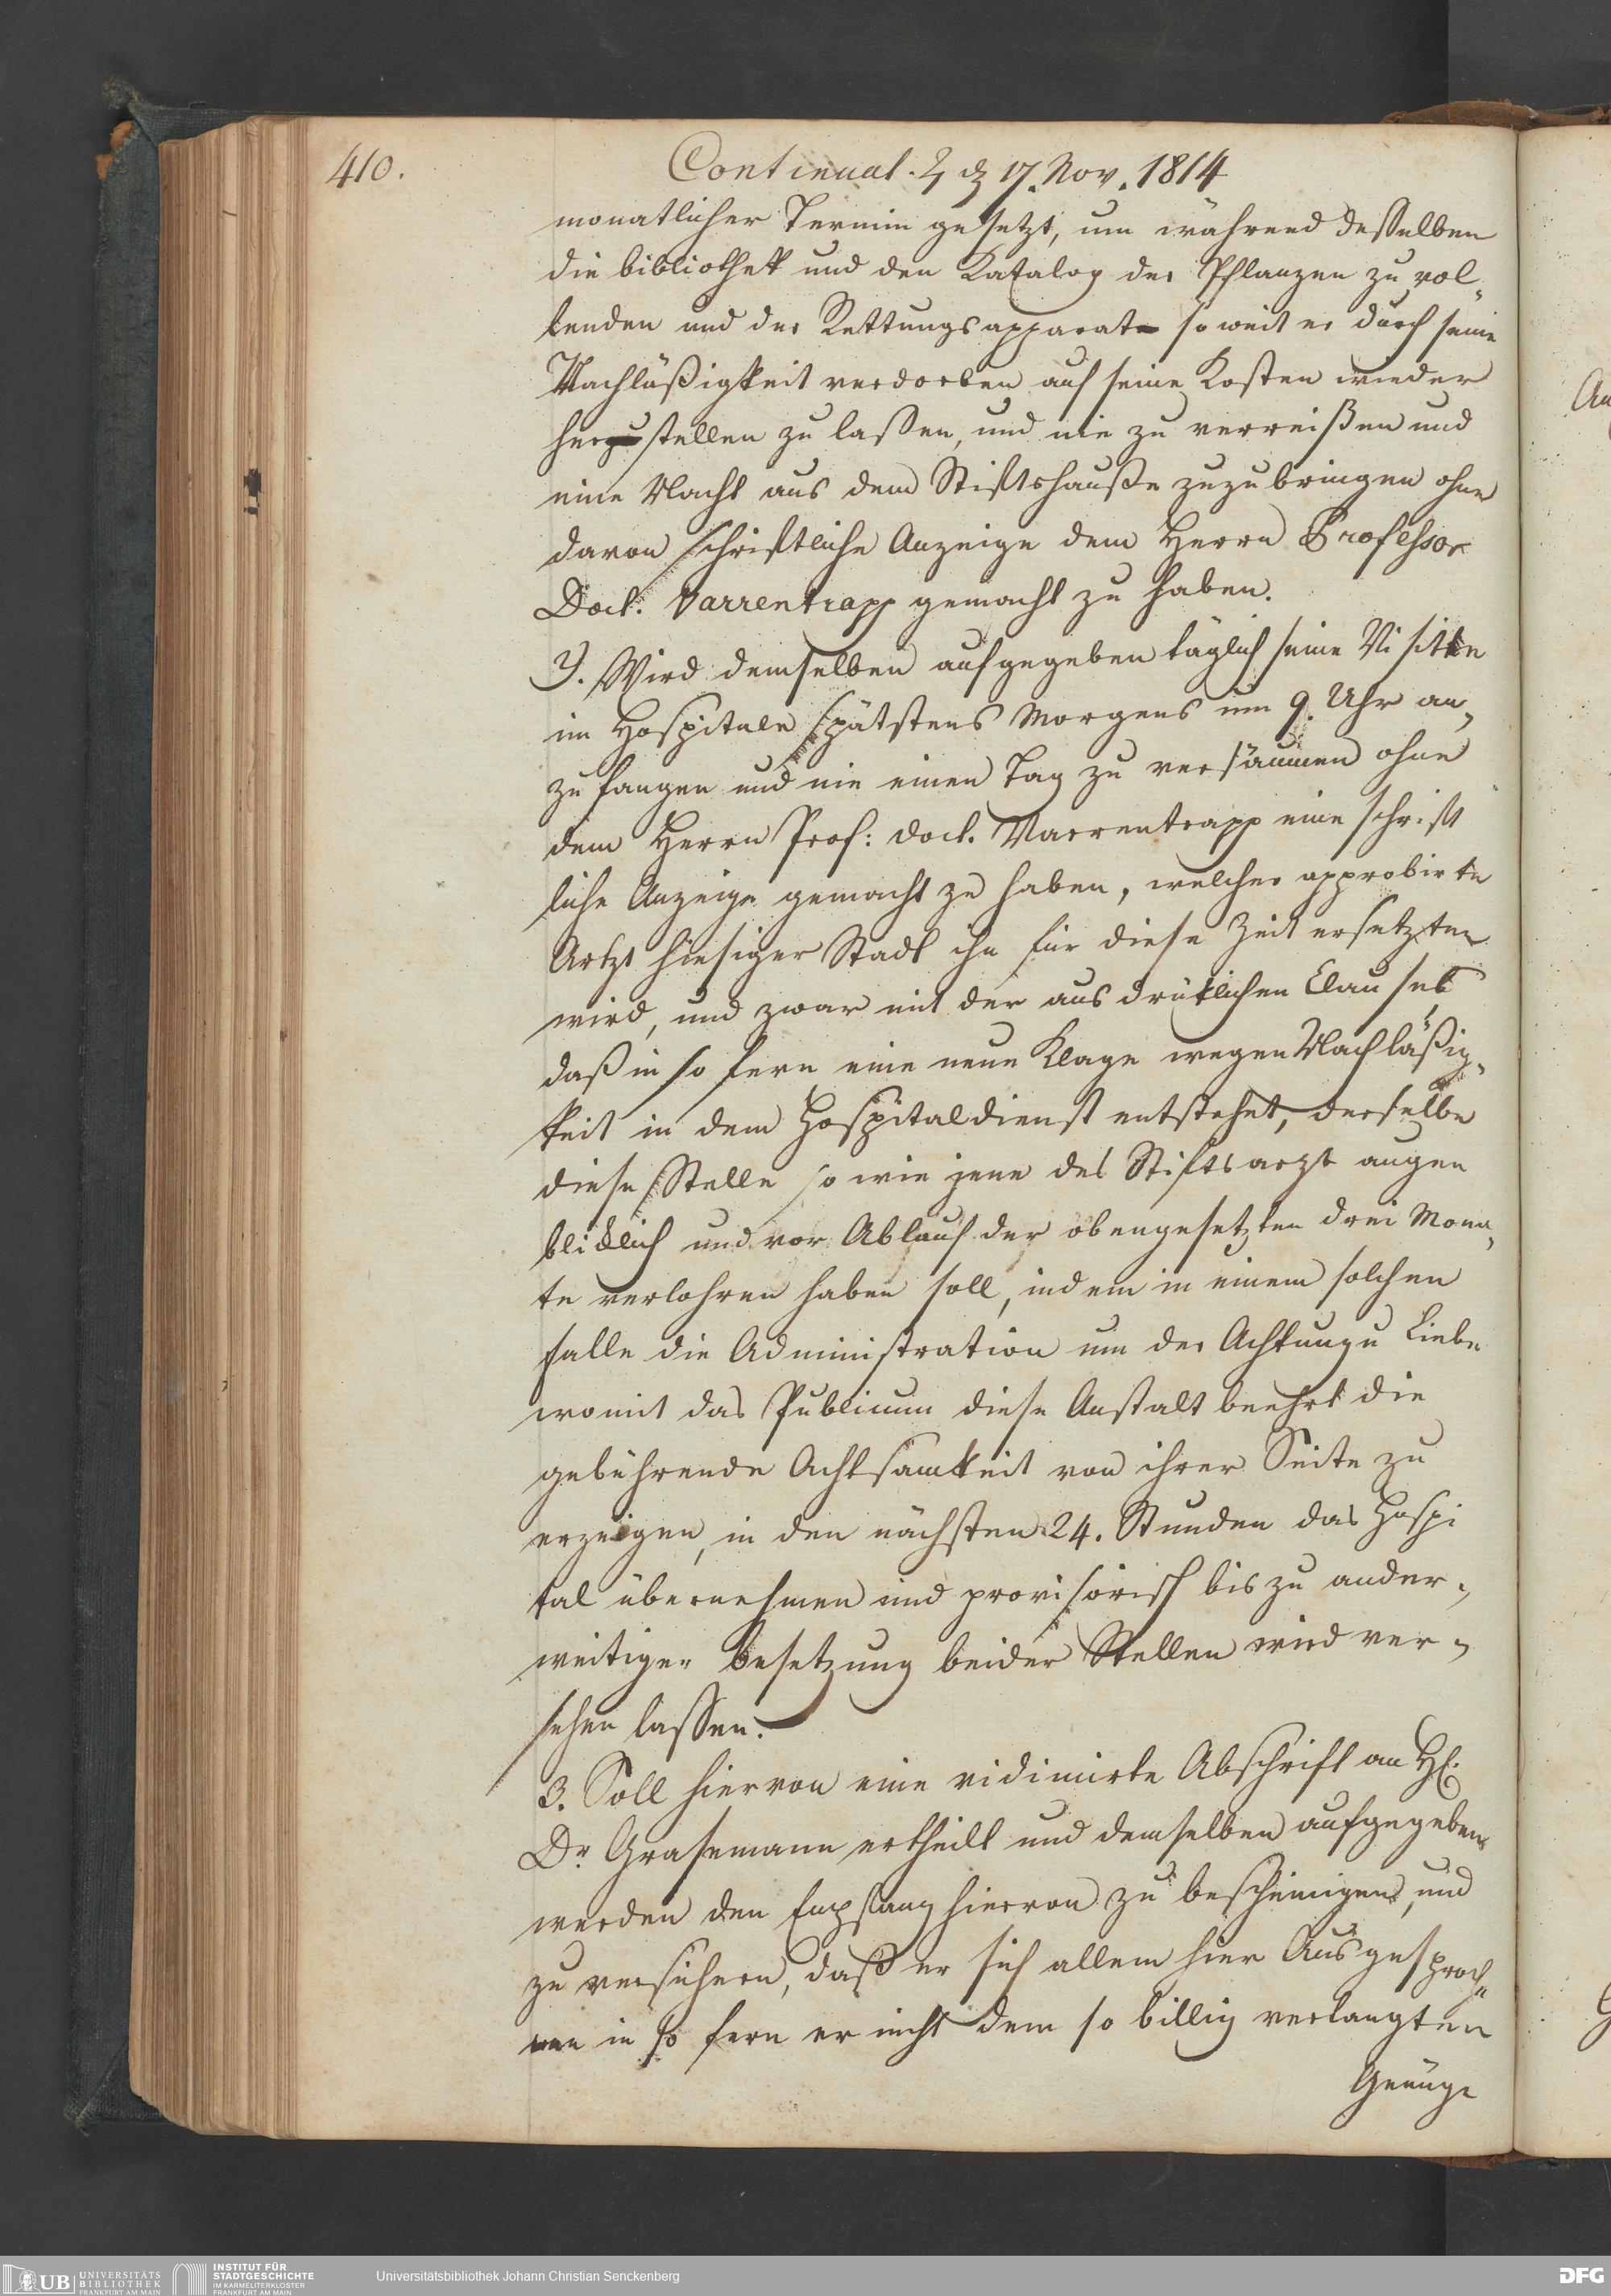 410.
Continuat. ♃ den 17. Nov. 1814
monatlicher Termin gesetzt, um während desselben
die bibliothek und den Katalog der Pflanzen zu vol„
lenden und der Rettungsapparat so weit er durch seine
Nachläßigkeit verdorben auf seine Kosten wieder
herzustellen zu laßen, und nie zu verreißen und
eine Nacht aus dem Stiftshauße zuzubringen ohne
davon schriftliche Anzeige dem Herrn Professor
Doct. Varrentrapp gemacht zu haben.
2. Wird demselben aufgegeben täglich seine Visitten
im Hospitale spätstens Morgens um 9. Uhr an„
zu fangen und nie einen Tag zu versäumen ohne
dem Herrn Prof: Doct. Varrentrapp eine schrift
liche Anzeige gemacht zu haben, welcher approbirte
Artzt hiesiger Stadt ihn für diese Zeit ersetzten
wird, und zwar mit der ausdrüklichen Clausel
daß in so fern eine neue Klage wegen Nachläßig„
keit in dem Hospitaldienst entstehet, derselbe
diese Stelle so wie jene des Stiftsarzt augen
bliklich und vor Ablauf der obengesetzten drei Mona„
te verlohren haben soll, indem in einem solchen
falle die Administration um der Achtung u Liebe
womit das Publicum diese Anstalt beehrt die
gebührende Achtsamkeit von ihrer Seite zu
erzeigen, in den nächsten 24. Stunden das Hospi
tal übernehmen und provisorisch bis zu ander„
weitiger besetzung beider Stellen wird ver„
sehen lassen.
3. Soll hiervon eine vidimirte Abschrift an H.
Dr. Grasemann ertheilt und demselben aufgegeben
werden den Empfang hiervon zu bescheinigen, und
zu versichern, daß er sich allem hier Ausgesproch„
nen in so fern er nicht dem so billig verlangten
Genüge
UB UNIVERSITÄTS
BIBLIOTHEK
FRANKFURT AM MAIN
INSTITUT FÜR
STADTGESCHICHTE
IM KARMELITERKLOSTER
FRANKFURT AM MAIN
Universitätsbibliothek Johann Christian Senckenberg
DFG